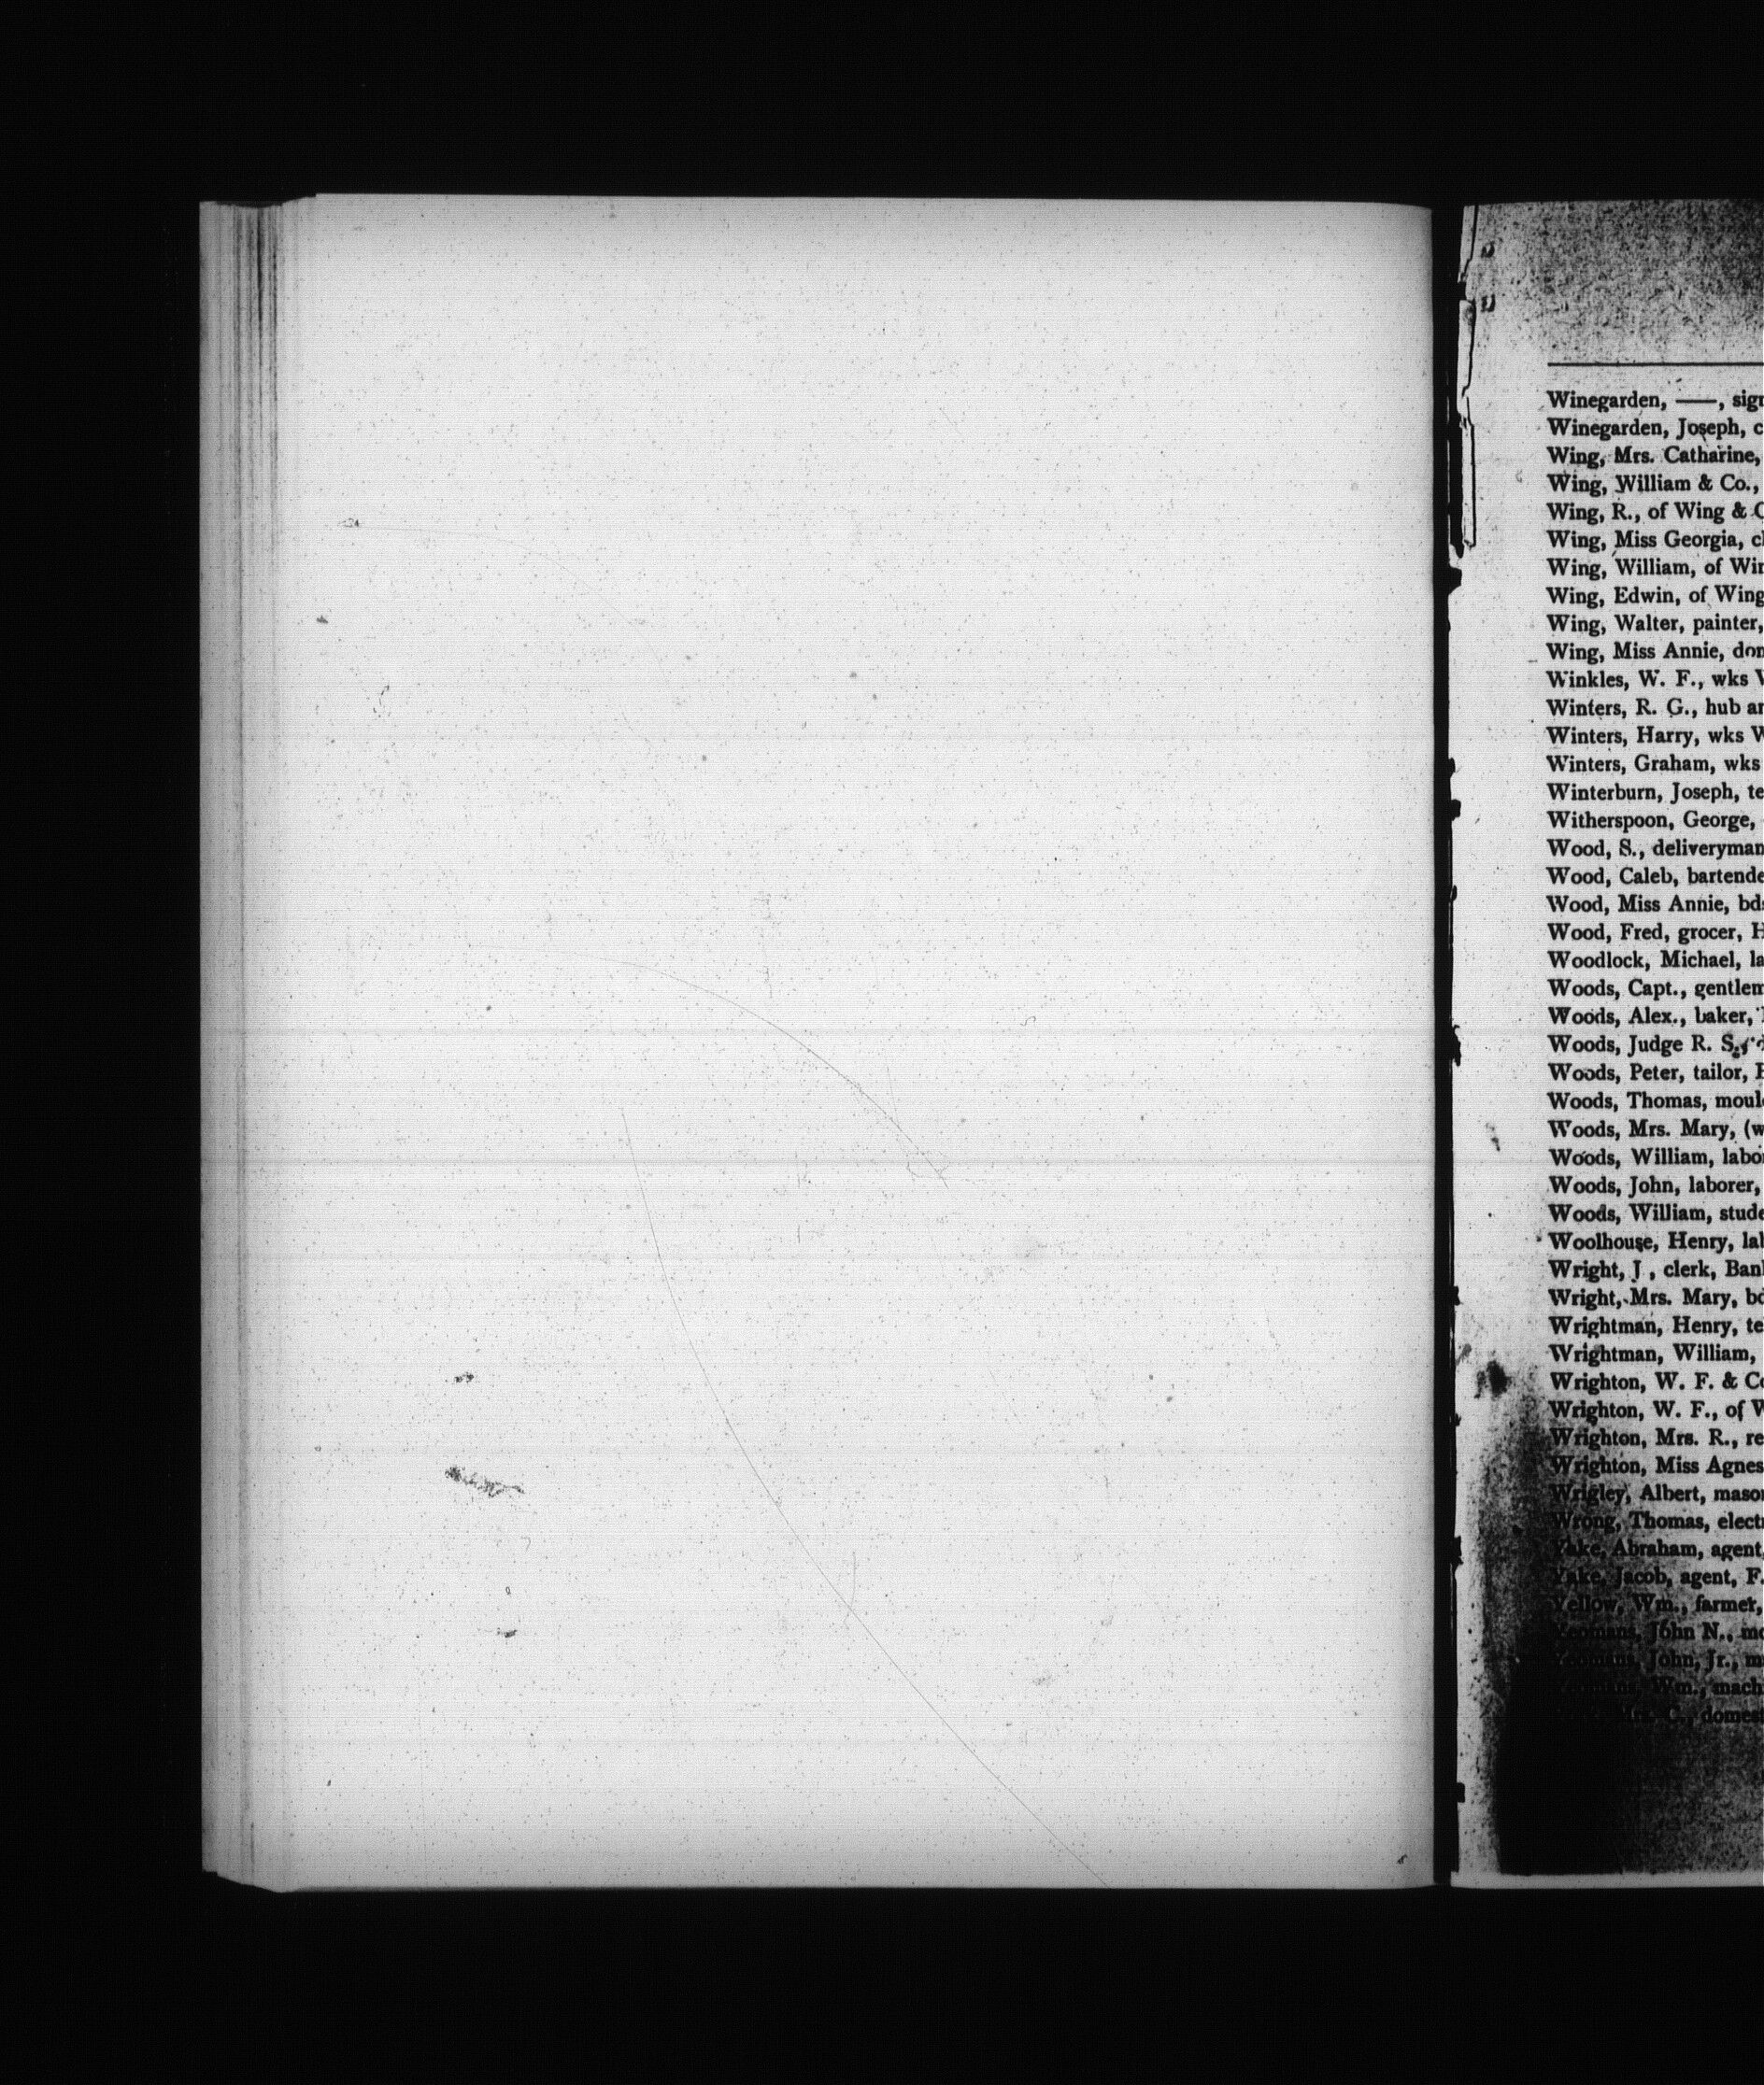 Winegarden, ——, sign
Winegarden, Joseph, c
Wing, Mrs. Catharine,
Wing, William & Co.,
Wing, R., of Wing & C
Wing, Miss Georgia, cl
Wing, William, of Win
Wing, Edwin, of Wing
Wing, Walter, painter,
Wing, Miss Annie, dom
Winkles, W. F., wks W
Winters, R. G., hub an
Winters, Harry, wks W
Winters, Graham, wks
Winterburn, Joseph, te
Witherspoon, George,
Wood, S., deliveryman
Wood, Caleb, bartende
Wood, Miss Annie, bds
Wood, Fred, grocer, H
Woodlock, Michael, la
Woods, Capt., gentlem
Woods, Alex., baker,
Woods, Judge R. S.,
Woods, Peter, tailor, H
Woods, Thomas, mould
Woods, Mrs. Mary, (w
Woods, William, labor
Woods, John, laborer,
Woods, William, stude
Woolhouse, Henry, lab
Wright, J , clerk, Bank
Wright, Mrs. Mary, bd
Wrightman, Henry, te
Wrightman, William,
Wrighton, W. F. & Co
Wrighton, W. F., of W
Wrighton, Mrs. R., re
Wrighton, Miss Agnes
Wrigley, Albert, mason
Wrong, Thomas, electr
Yake, Abraham, agent,
Yake, Jacob, agent, F.
Yellow, Wm., farmer,
Yeomans, John N., mo
Yeomans, John, Jr., m
Yeomans, Wm., mach
domest